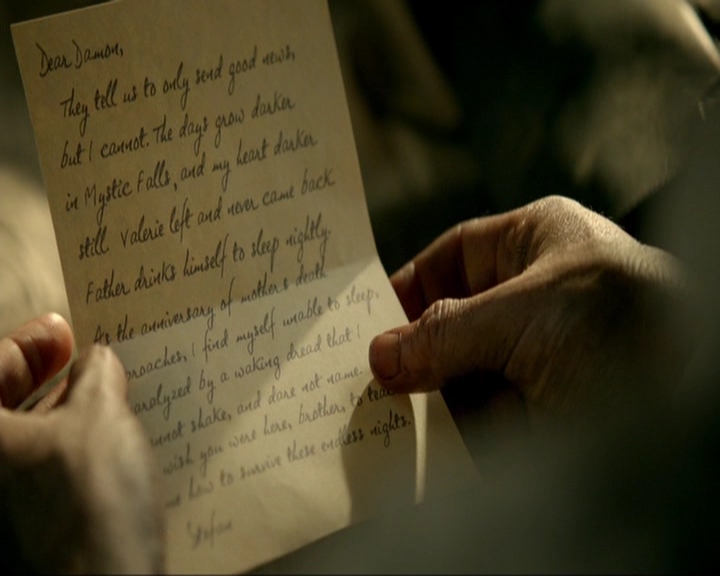 Dear Damon,
They tell us to only send good news,
but I cannot. The days grow darker
in Mystic Falls, and my heart darker
still Valerie left and never came back
Father drinks himself to sleep nightly.
As the anniversary of mother's death
proaches, I find myself unable to sleep,
aralyzed by a waking dread that I
nnot shake, and dare not name.
wish you were here, brother, to teac
me how to survive these endless nights.
Stefan